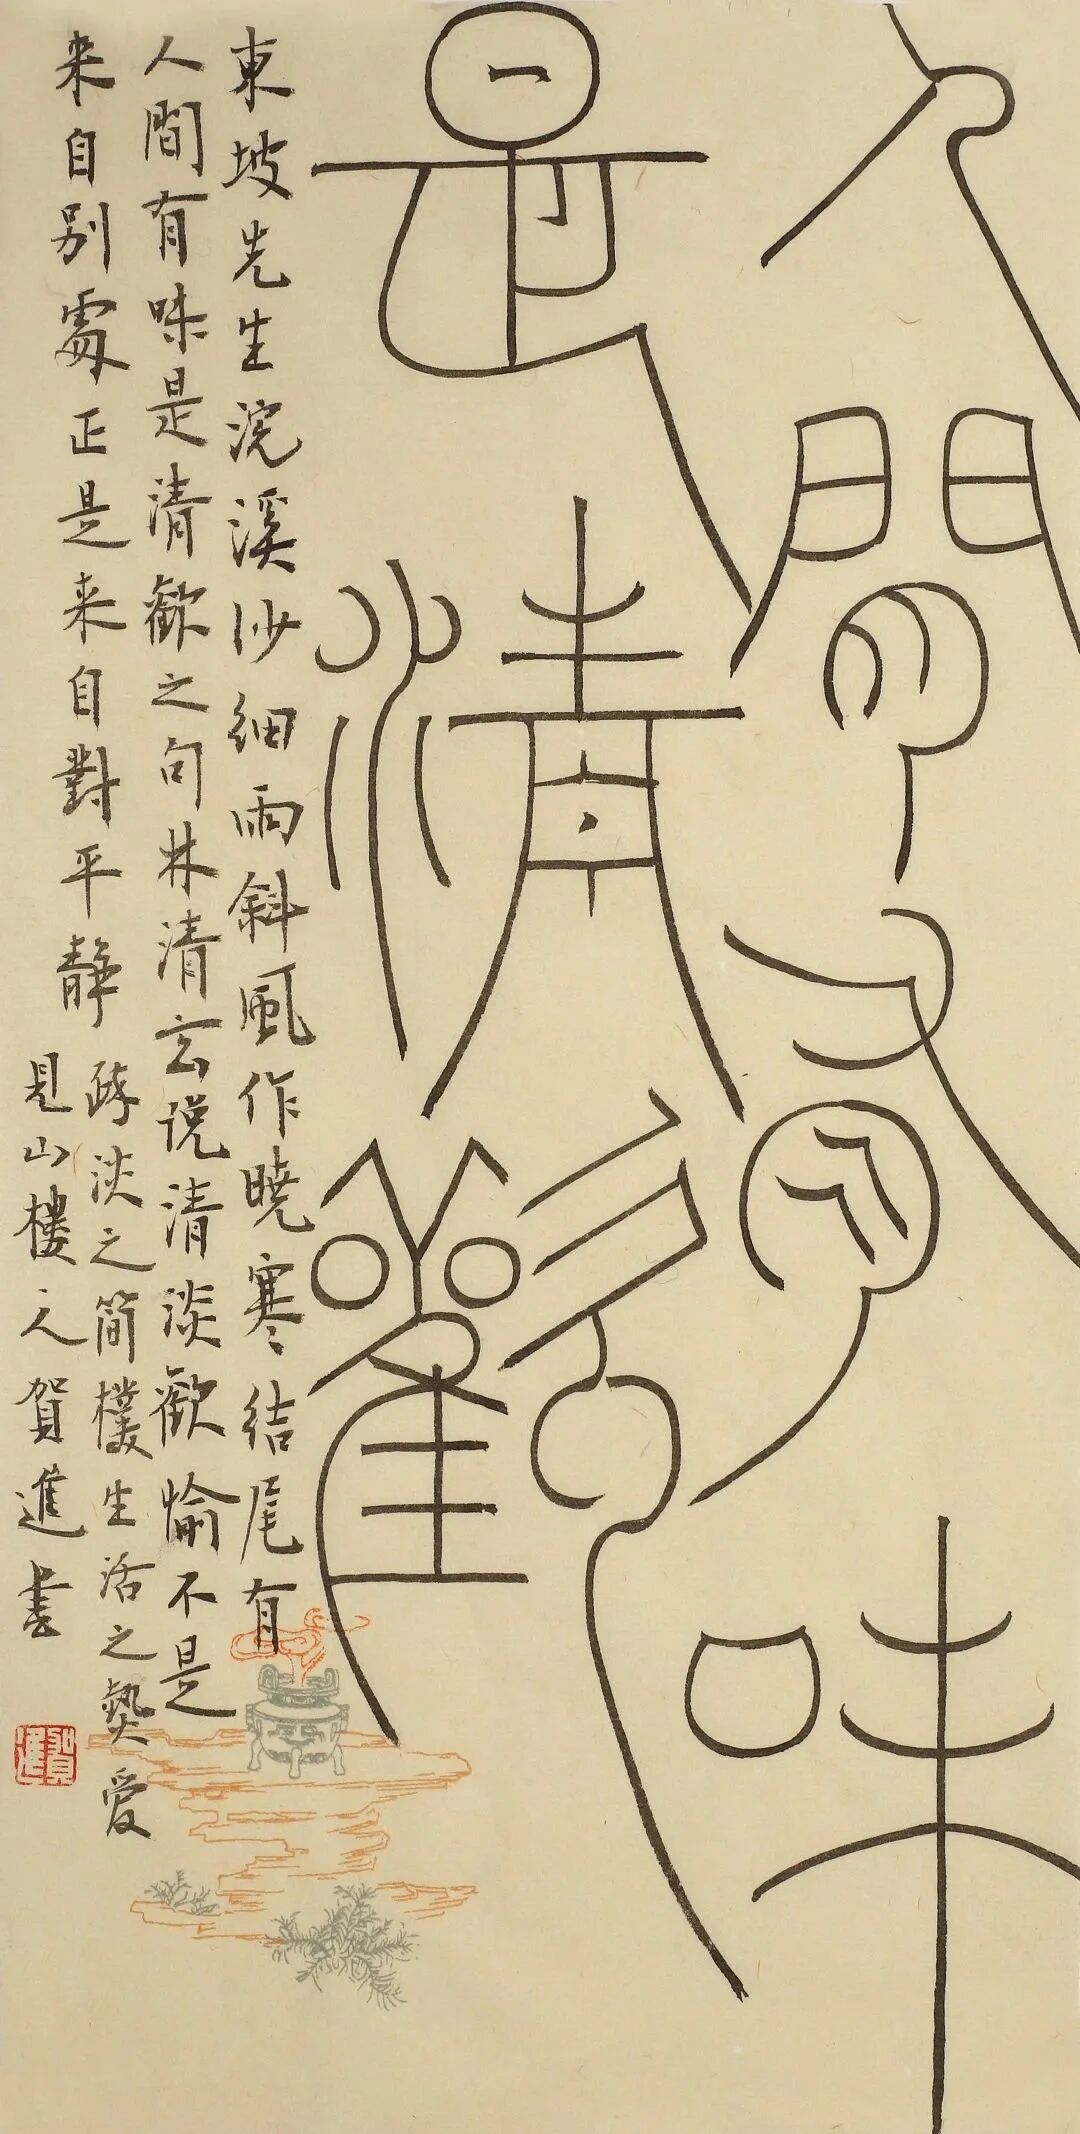 人間有味
是清歡
東坡先生浣溪沙細雨斜風作曉寒結尾有
人間有味是清歡之句林清玄説清淡歡愉不是
来自别處正是来自對平靜疏淡之簡樸生活之熱愛
見山樓人賀進書
賀進